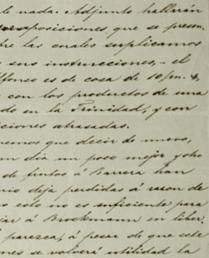 de nada. Adjunto hallarán
posiciones, que se presen
bre las cuales suplicamos
sus instrucciones, - el
es de cosa de 10/m.
con los productos de una
do en la Trinidad, y con
ciones atrasadas.
remos que decir de menos,
un dia un poco mejor y otro
de fintos á Barrera han
nio deja perdidas á razon de
esto no es suficiente para
jar á Brockmann en liber
parezca, á pesar de que este
nes se volverá utilidad la